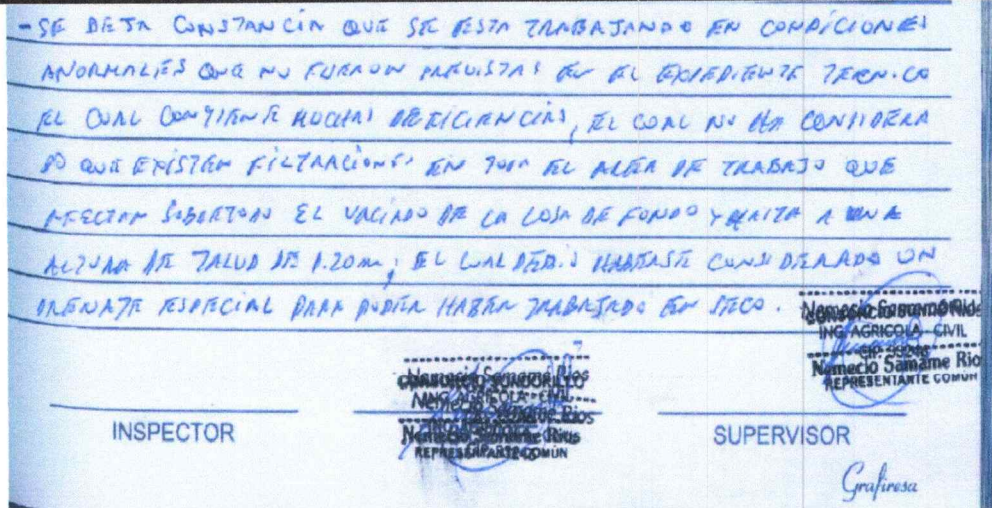 - SE DEJA CONSTANCIA QUE SE ESTA TRABAJANDO EN CONDICIONES
ANORMALES QUE NO FUERON PREVISTAS EN EL EXPEDIENTE TECNICO
EL CUAL CONTIENE MUCHAS DEFICIENCIAS, EL CUAL NO HA CONSIDERA
DO QUE EXISTEN FILTRACIONES EN TODO EL AREA DE TRABAJO QUE
AFECTAN SOBRETODO EL VACIADO DE LA LOSA DE FONDO Y HASTA A UNA
ALTURA DE TALUD DE 1.20m; EL CUAL DEBIO HABERSE CONSIDERADO UN
DRENAJE ESPECIAL PARA PODER HABER TRABAJADO EN SECO.
ING. AGRICOLA - CIVIL
Nemecio Samame Rios
REPRESENTANTE COMUN
CONSORCIO SONDORILLO
Nemecio Samame Rios
REPRESENTANTE COMÚN
INSPECTOR
SUPERVISOR
Grafiresa